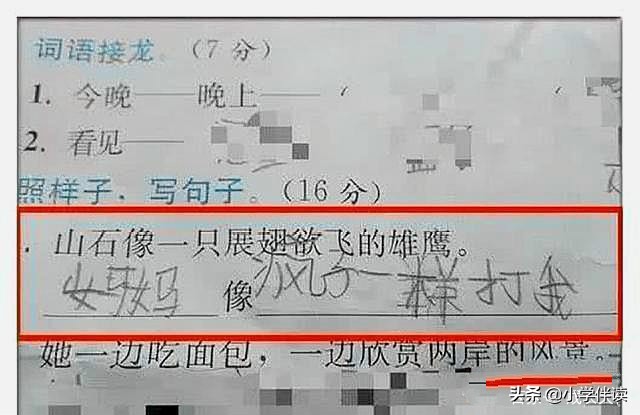 词语接龙。(7分)
1. 今晚——晚上——
2. 看见——
照样子，写句子。(16分)
. 山石像一只展翅欲飞的雄鹰。
妈妈像疯子一样打我
她一边吃面包，一边欣赏两岸的风景。
头条 @小学伴读